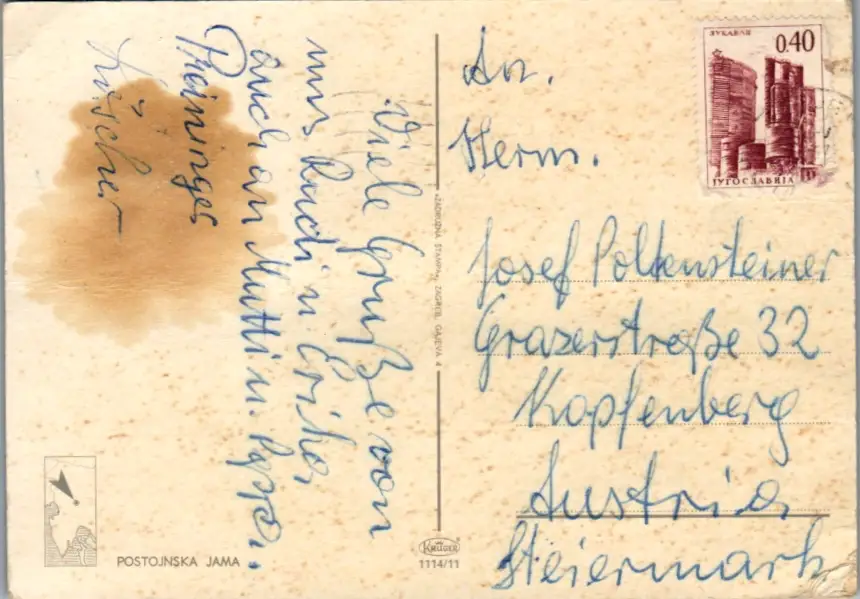 Viele Grüße von
uns Rudi u. Erika,
auch an Mutti u.
Löscher
POSTOJNSKA JAMA
»ZADRUŽNA ŠTAMPA«, ZAGREB, GAJEVA 4
KRÜGER
1114/11
ЛУКАВАЦ
0.40
ЈУГОСЛАВИЈА
An.
Herrn.
Josef Poltensteiner
Grazerstraße 32
Kapfenberg
Austria
Steiermark